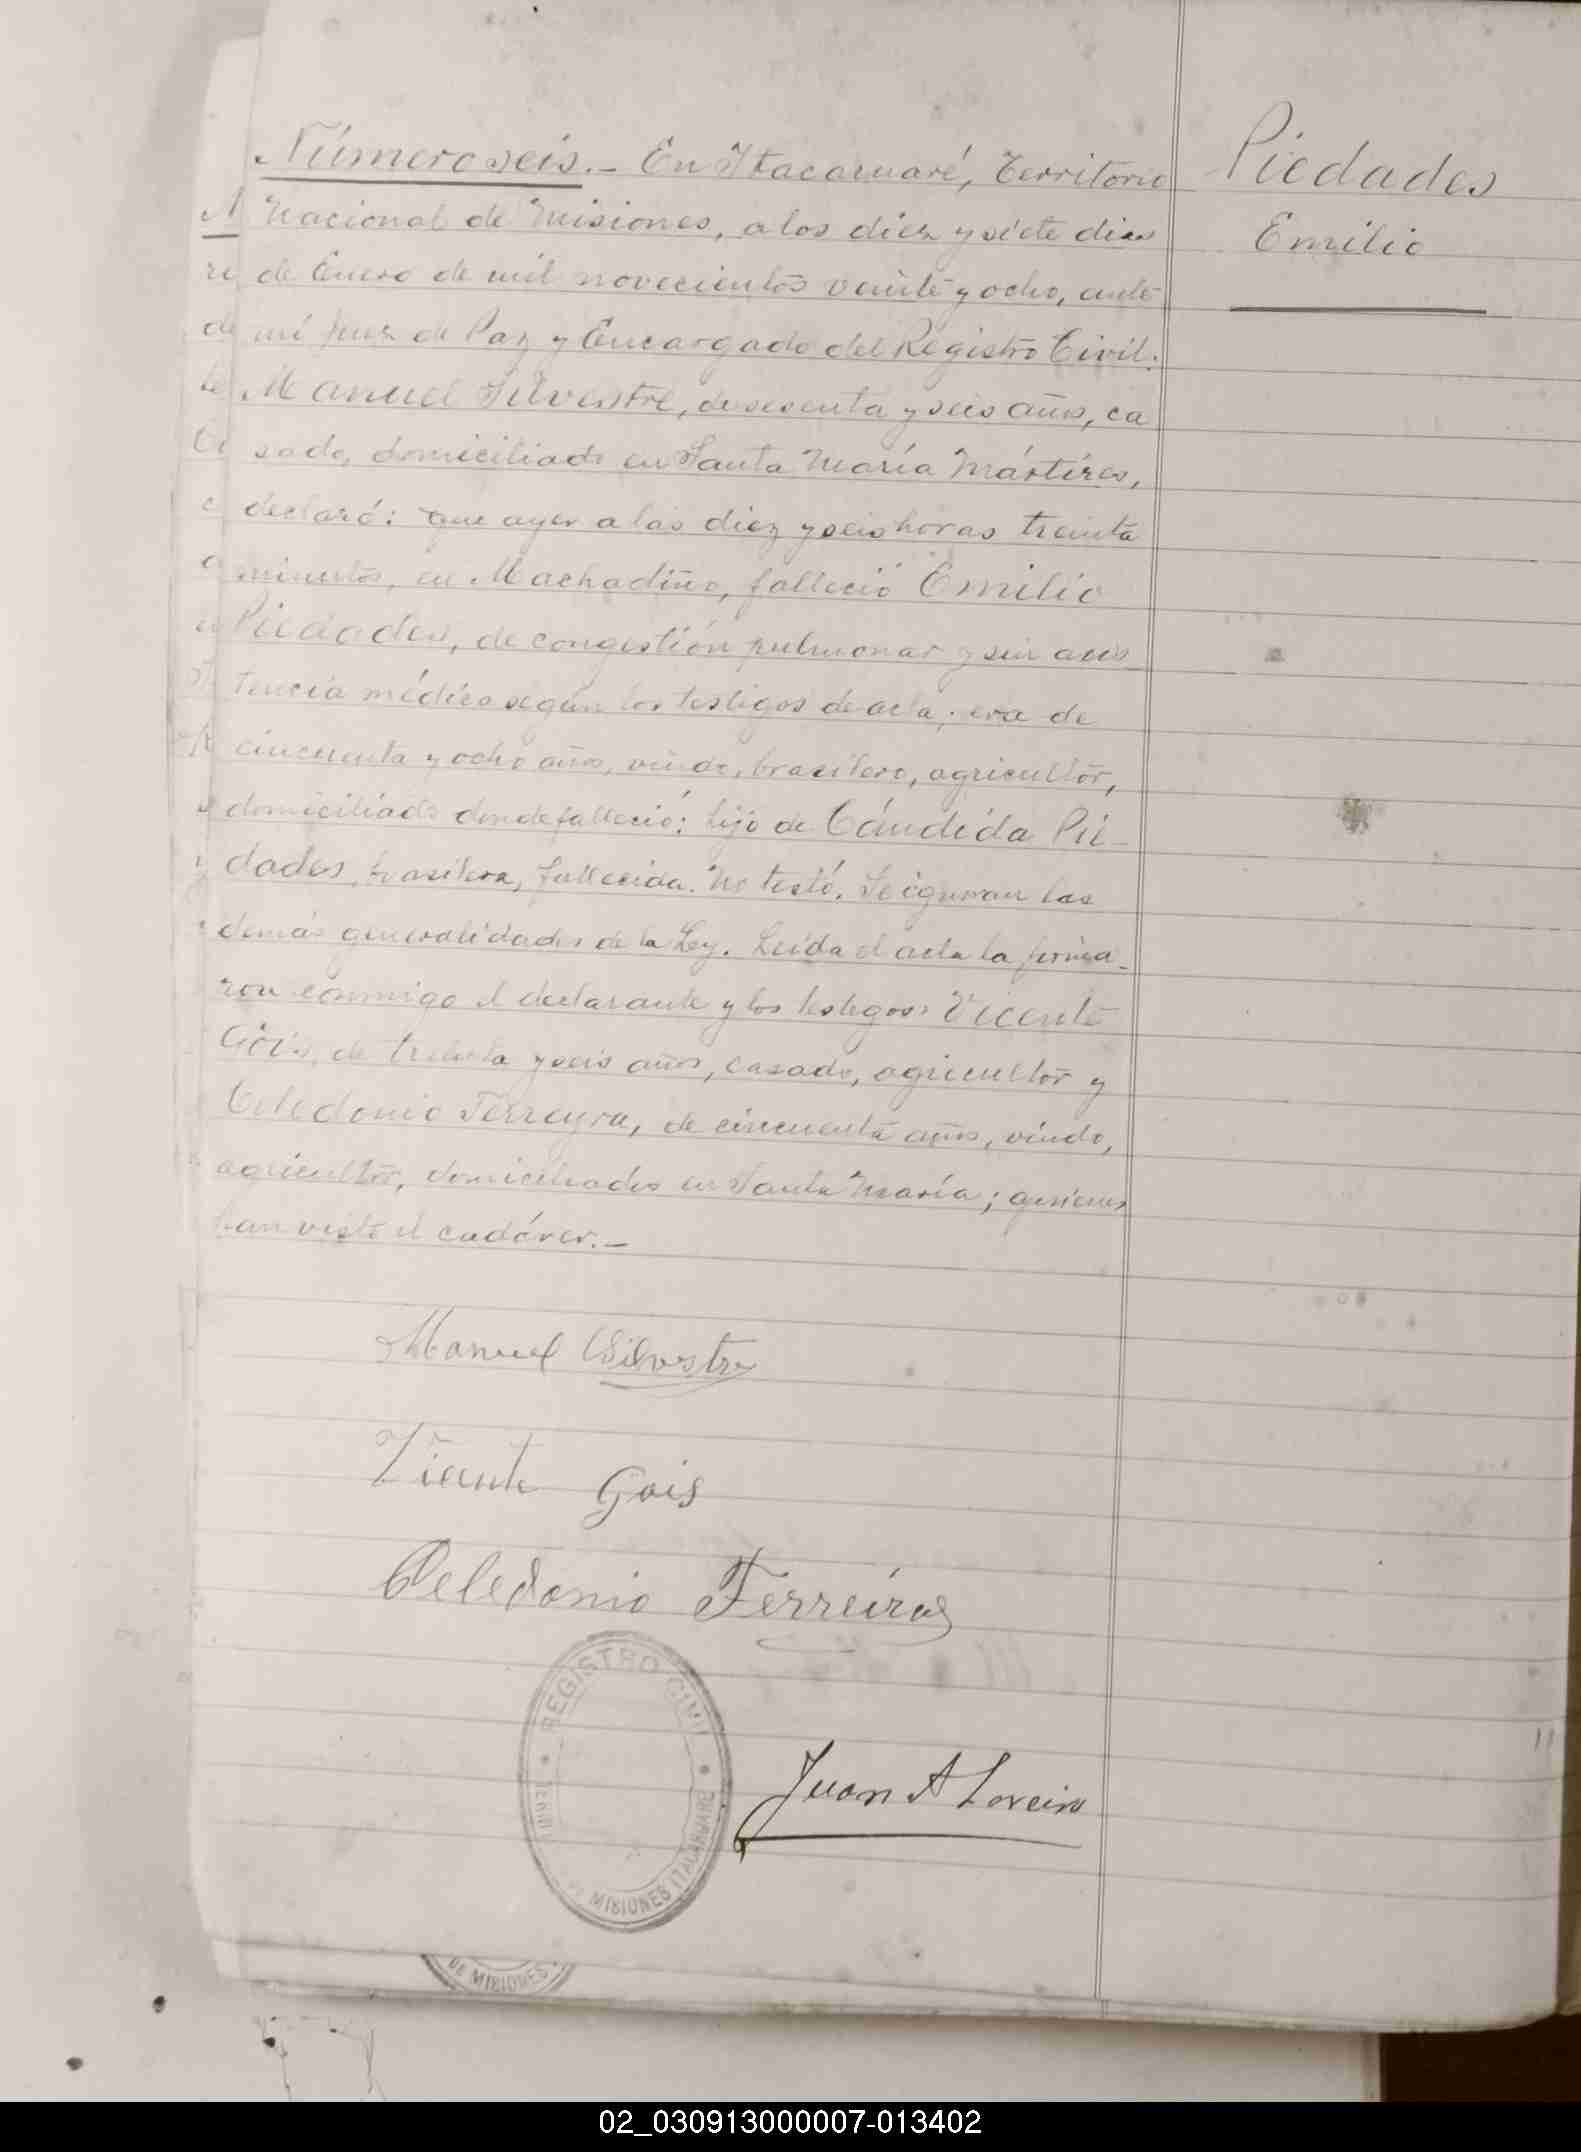 Número seis. _ En Itacaruaré, Territorio
Nacional de Misiones, a los diez y siete dias
de Enero de mil novecientos veinte y ocho, ante
mí Juez de Paz y Encargado del Registro Civil:
Manuel Silvestre, de sesenta y seis años, ca
sado, domiciliado en Santa María Mártires,
declaró: que ayer a las diez y seis horas treinta
minutos, en Machadiño, falleció Emilio
Piedades, de congestión pulmonar y sin asis
tencia médica según los testigos de acta; era de
cincuenta y ocho años, viudo, brasilero, agricultor,
domiciliado donde falleció; hijo de Cándida Pie-
dades, brasilera, fallecida. No testó. Se ignoran las
demás generalidades de la Ley. Leída el acta la firma-
ron conmigo el declarante y los testigos: Vicente
Góis, de treinta y seis años, casado, agricultor y
Celedonio Ferreyra, de cincuenta años, viudo,
agricultor, domiciliados en Santa María; quienes
han visto el cadáver. _
Piedades
Emilio
Manuel Silvestre
Vicente Gois
Celedonio Ferreira
REGISTRO CIVIL
DE MISIONES ITACARUARE
Juan A Loreiro
DE MISIONES
02_030913000007-013402